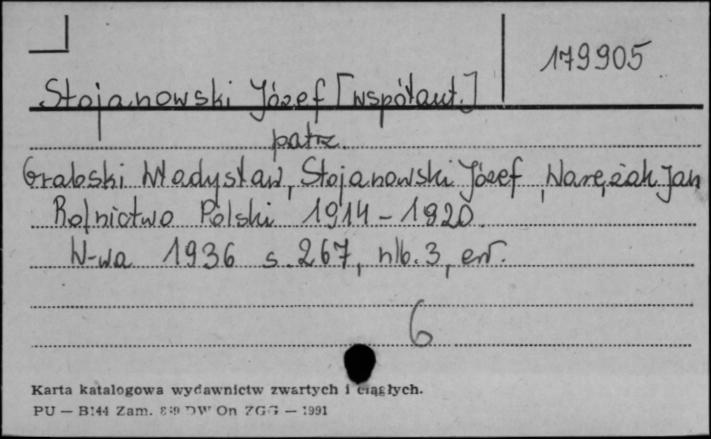 179905
Stojanowski Józef [współaut.]
patrz
Grabski Władysław, Stojanowski Józef, Warężak Jan
Rolnictwo Polski 1914-1920.
W-wa 1936 s. 267, nlb. 3, err.
6
Karta katalogowa wydawnictw zwartych i ciągłych.
PU — B144 Zam. DW On ZGG — 1991